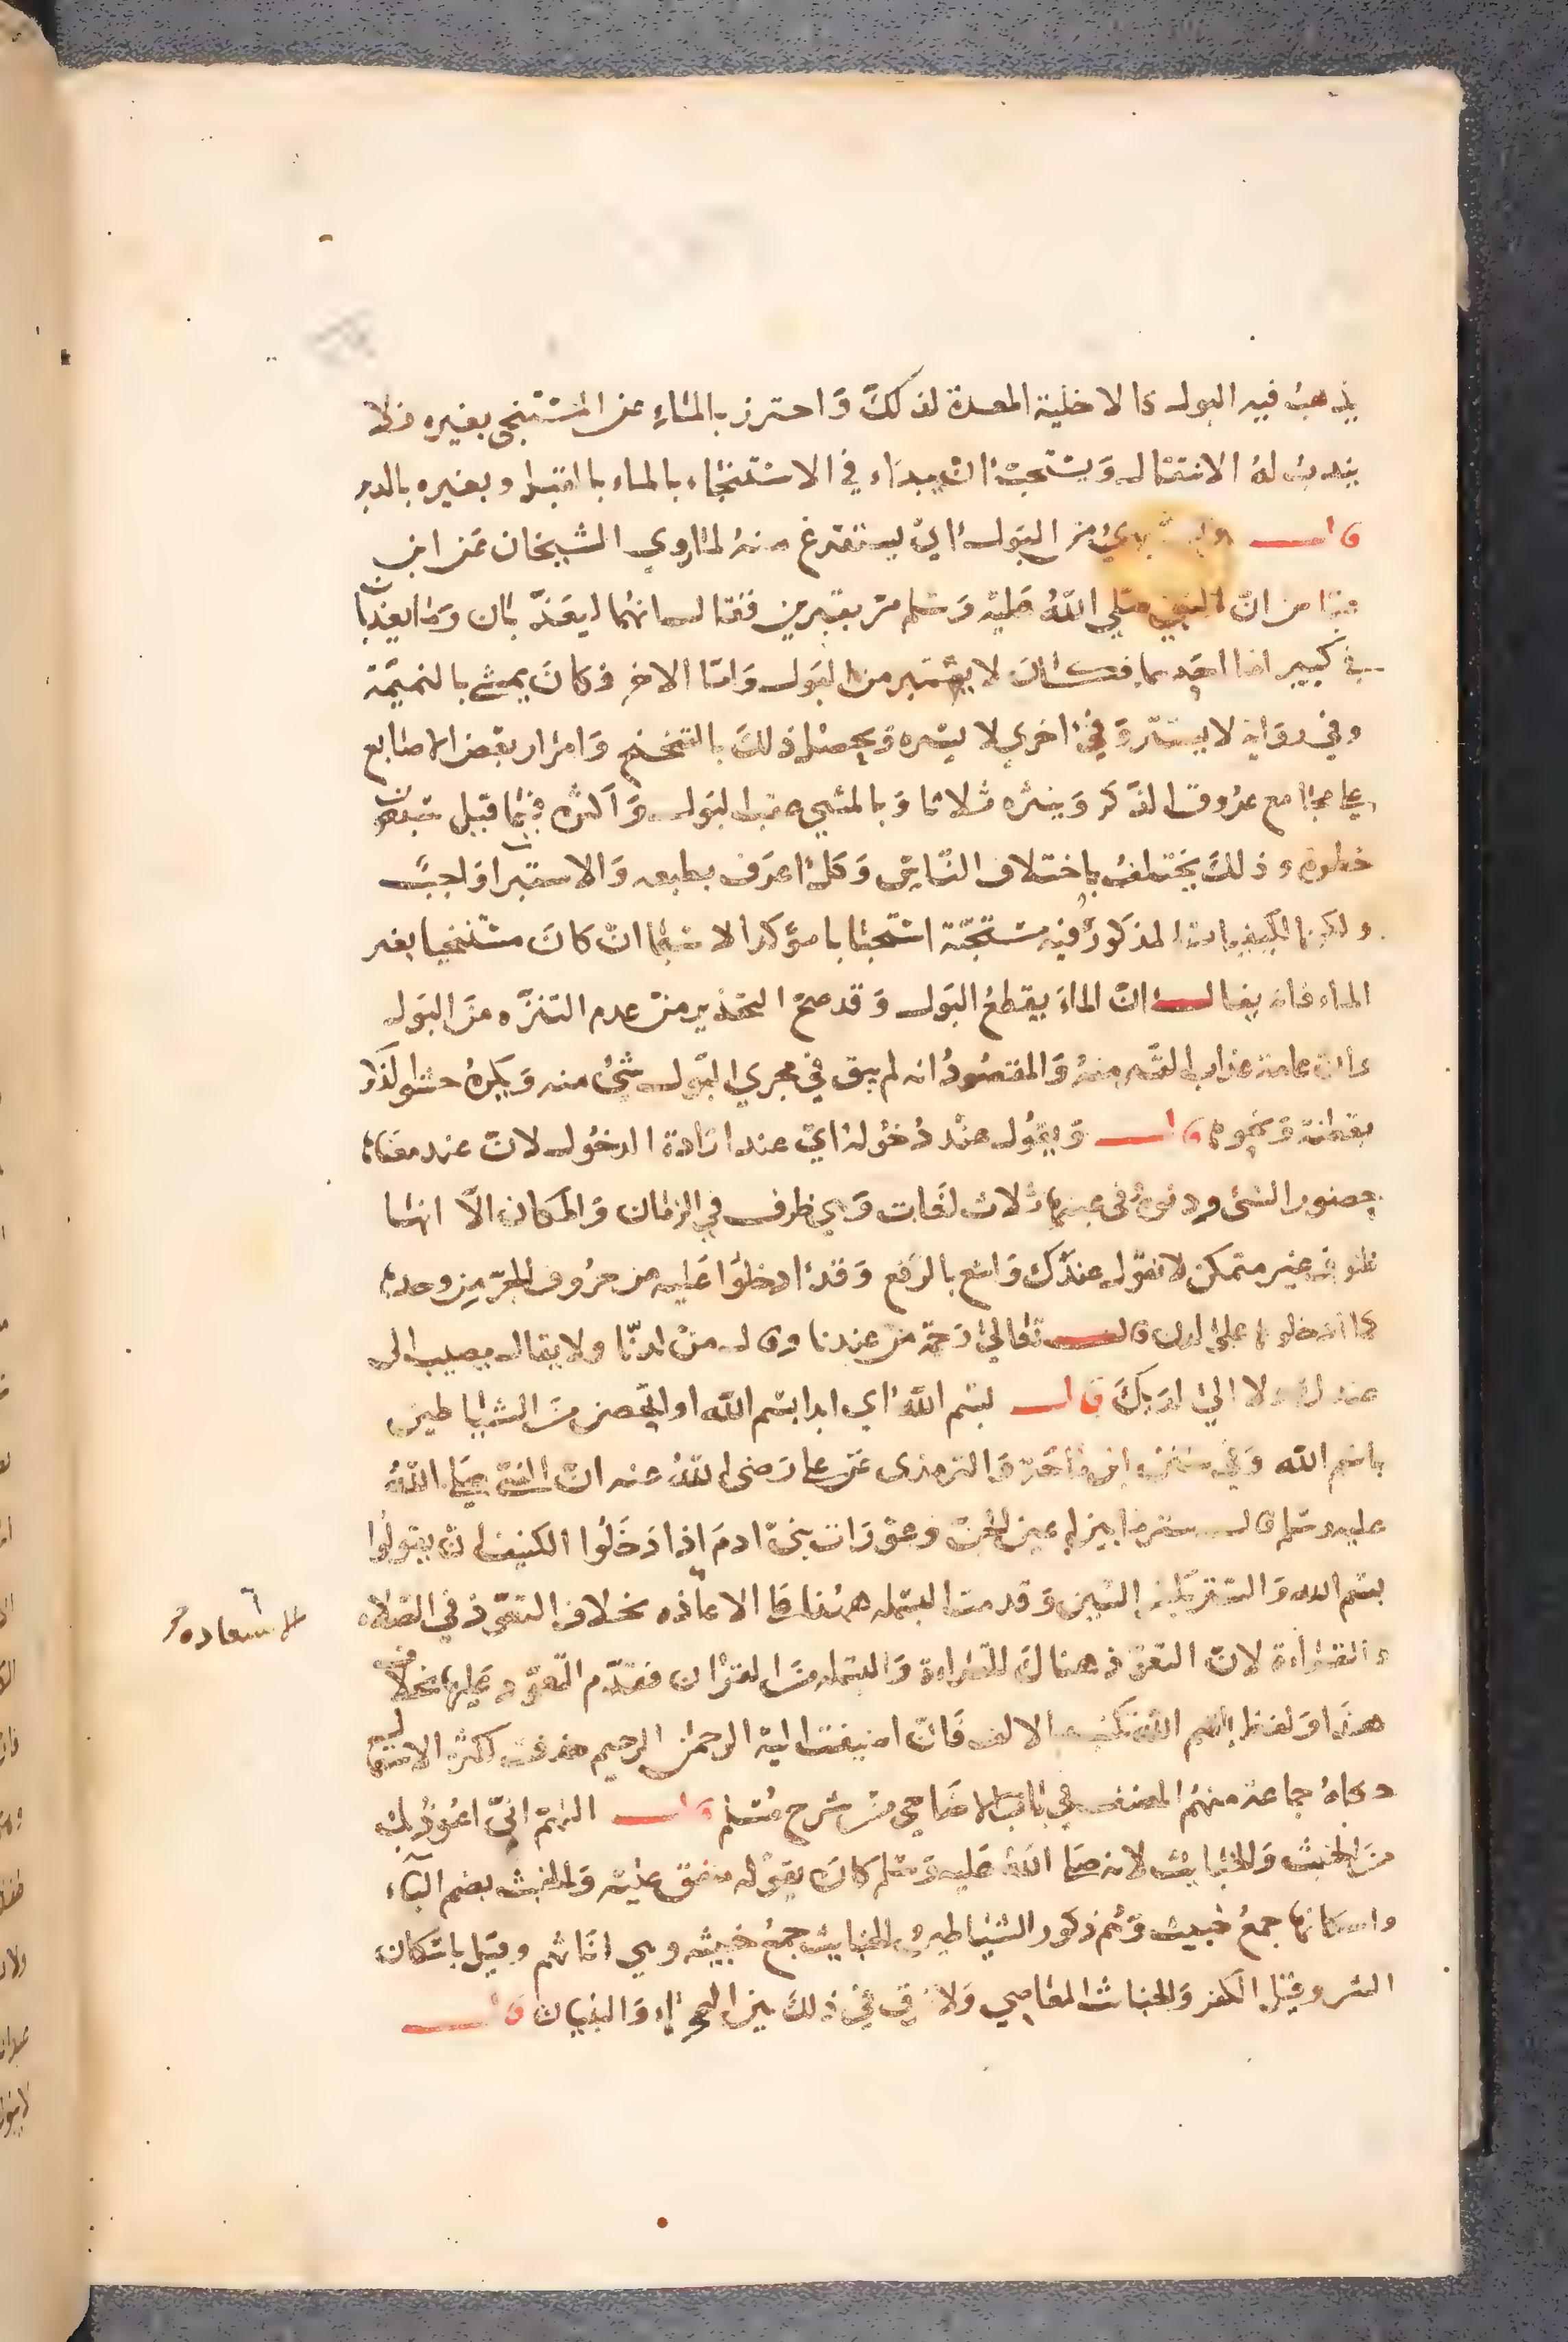 يذهب فيه البول كالاخلية المعدة لذلك واحترز بالماء عن المستنجي بغيره فلا
يندب له الانتقال ويستحب ان يبداء في الاستنجاء بالماء بالقبل وبغيره بالدبر
قال ويستبرئ من البول اي يستفرغ منه لما روي الشيخان عن ابن
عباس ان النبي صلي الله عليه وسلم مر بقبرين فقال انهما ليعذبان وما يعذبان
في كبير اما احدهما فكان لا يستبر من البول واما الاخر فكان يمشي بالنميمة
وفي رواية لا يستتر وفي اخري لا يستنزه ويحصل ذلك بالتنحنح وامرار بعض الاصابع
علي مجامع عروق الذكر وينثره ثلاثا وبالمشي عقب البول واكثره فيما قيل سبعون
خطوة وذلك يختلف باختلاف الناس وكل اعرف بطبعه والاستبرا واجب
ولكن الكيفيات المذكورة فيه مستحبة استحبابا مؤكدا لا سيما ان كان مستنجيا بغير
الماء فانه يقال ان الماء يقطع البول وقد صح التحذير من عدم التنزه من البول
وان عامة عذاب القبر منه والمقصود انه لم يبق في مجري البول شئ منه ويكره حشوا لذكر
بقطنة ونحوها قال ويقول عند دخوله اي عند ارادة الدخول لان عند معناه
حضور الشئ ودنوه في عينها ثلاث لغات وهي ظرف في الزمان والمكان الا انها
ظرف غير متمكن لا تقول عندك واسع بالرفع وقد ادخلوا عليه من حروف الجر من وحدها
كما ادخلوها علي لدن قال تعالي رحمة من عندنا وقال من لدنا ولا يقال مصيب الى
عندك ولا الي لديك قال بسم الله اي ابدا بسم الله او اتحصن من الشياطين
باسم الله وفي سنن ابن ماجه والترمذى عن علي رضى الله عنه ان النبي صلي الله
عليه وسلم قال ستر ما بين اعين الجن وعورات بني ادم اذا دخلوا الكنيف ان يقولوا
بسم الله وقدمت البسملة هنا على الاعاذه بخلاف التعوذ في الصلاه
الاستعاذه
والقراءة لان التعوذ هناك للقراءة والبسملة من القران فقدم التعوذ عليها بخلاف
هذا ولفظ بسم الله تكتب بالالف فان اضيفت اليه الرحمن الرحيم حذفت لكثرة الاستعمال
حكاه جماعة منهم المصنف في باب الاضاحي من شرح مسلم قال اللهم اني اعوذ بك
من الخبث والخبايث لانه صلي الله عليه وسلم كان يقوله متفق عليه والخبث بضم الباء
واسكانها جمع خبيث وهم ذكور الشياطين والخبايث جمع خبيثه وهي اناثهم وقيل باسكان
الشر وقيل الكفر والخباث المعاصي ولا فرق في ذلك بين الصحراء والبنيان قال